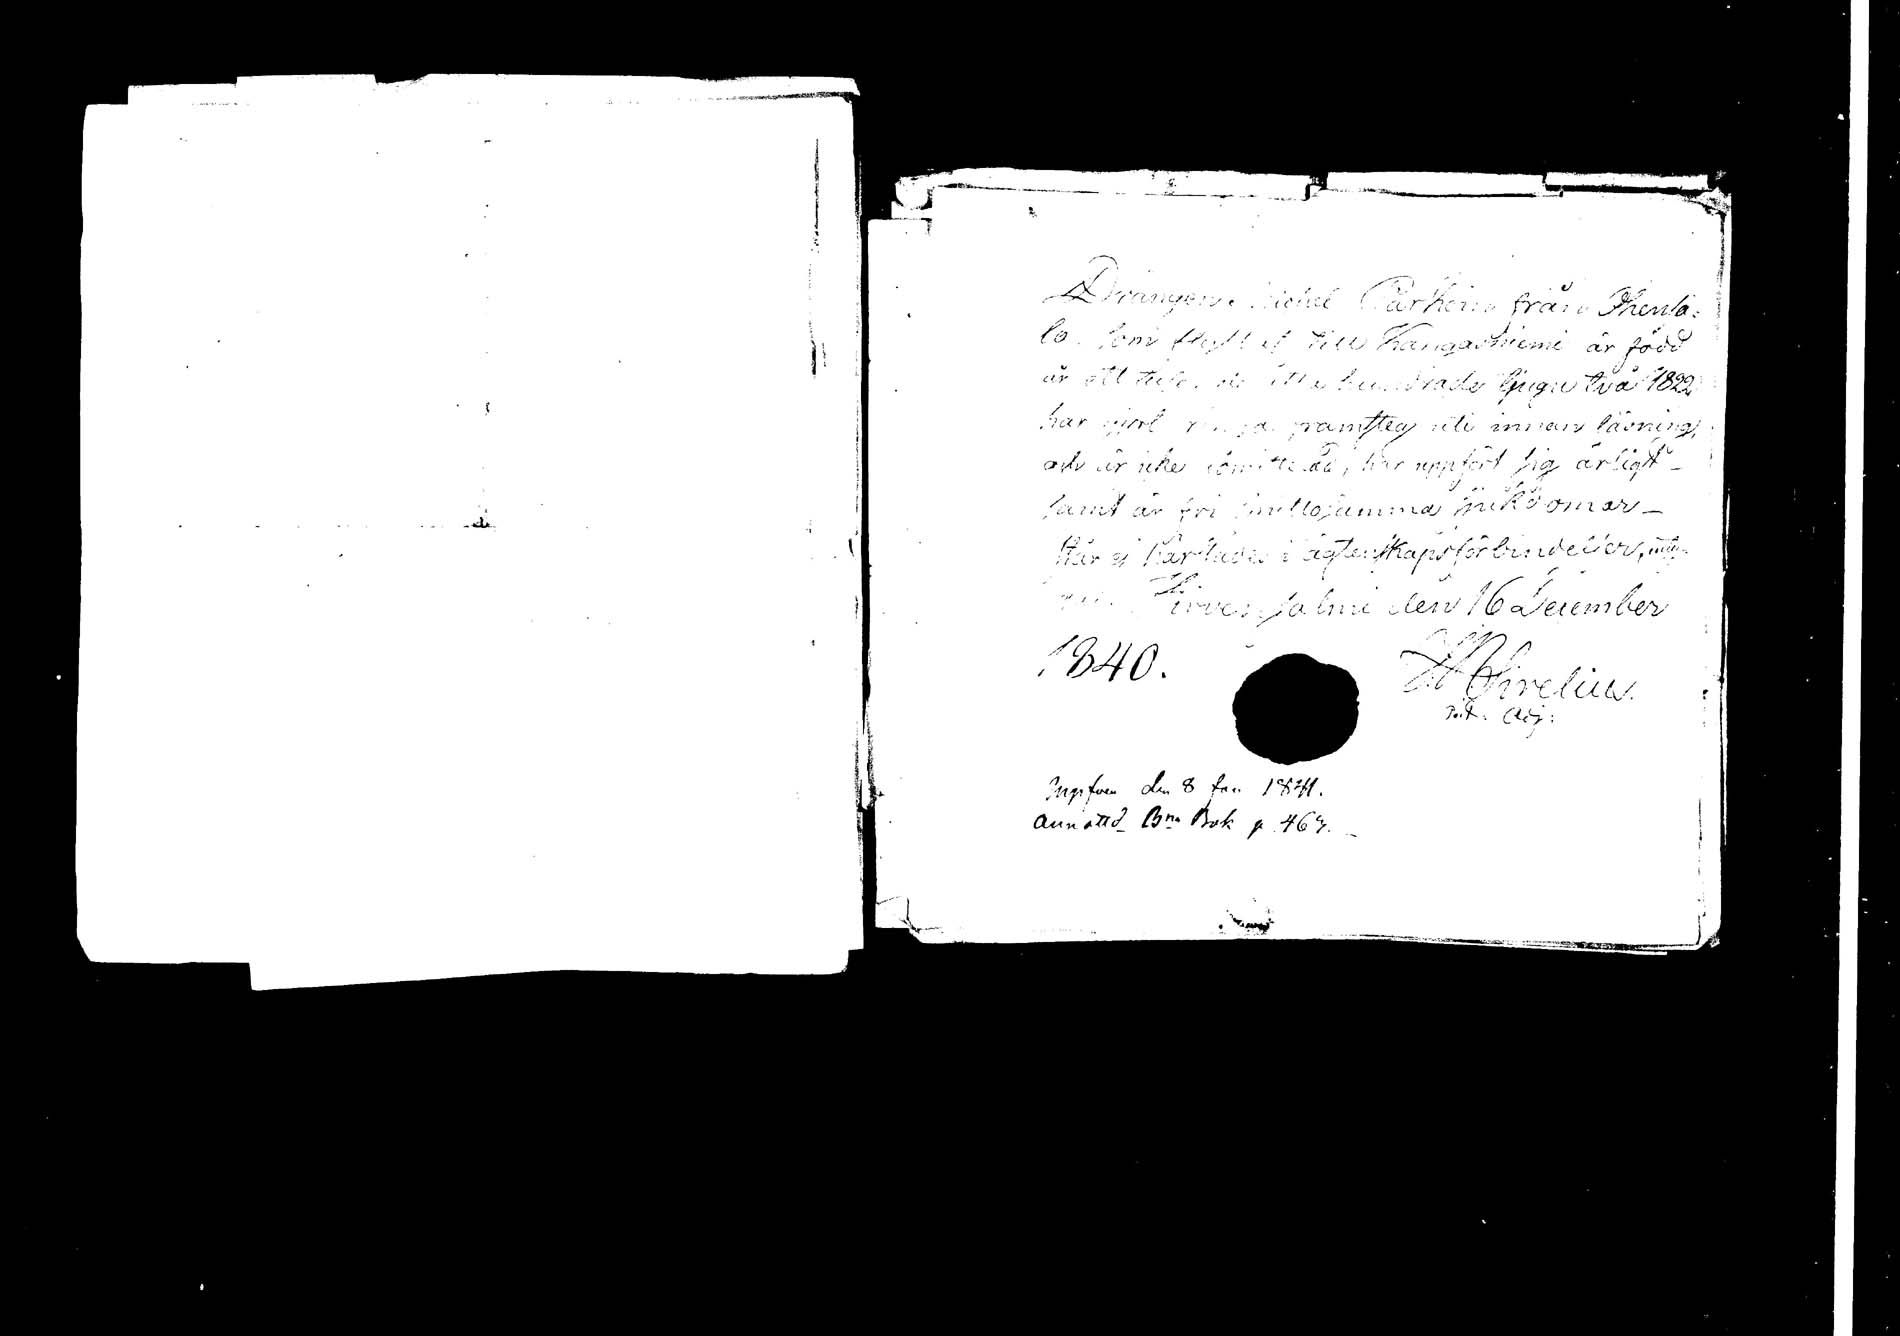 Drängen Michel Parkoin från Phenlo-
la som flytt af till Kangasniemi är född
år ett tusende åtta hundrade tjugu två 1822
har gjort ringa framsteg uti innan läsning,
och är icke admitterad, har uppfört sig ärligt
samt är fri smittosamma sjukdomar —
Står ej härstädes i ägtenskapsförbindelser,
Hirvensalmi den 16 December
1840.
Sirelius.
Adj:
den 8 Jan 1841.
annotd Bna Bok p 467.